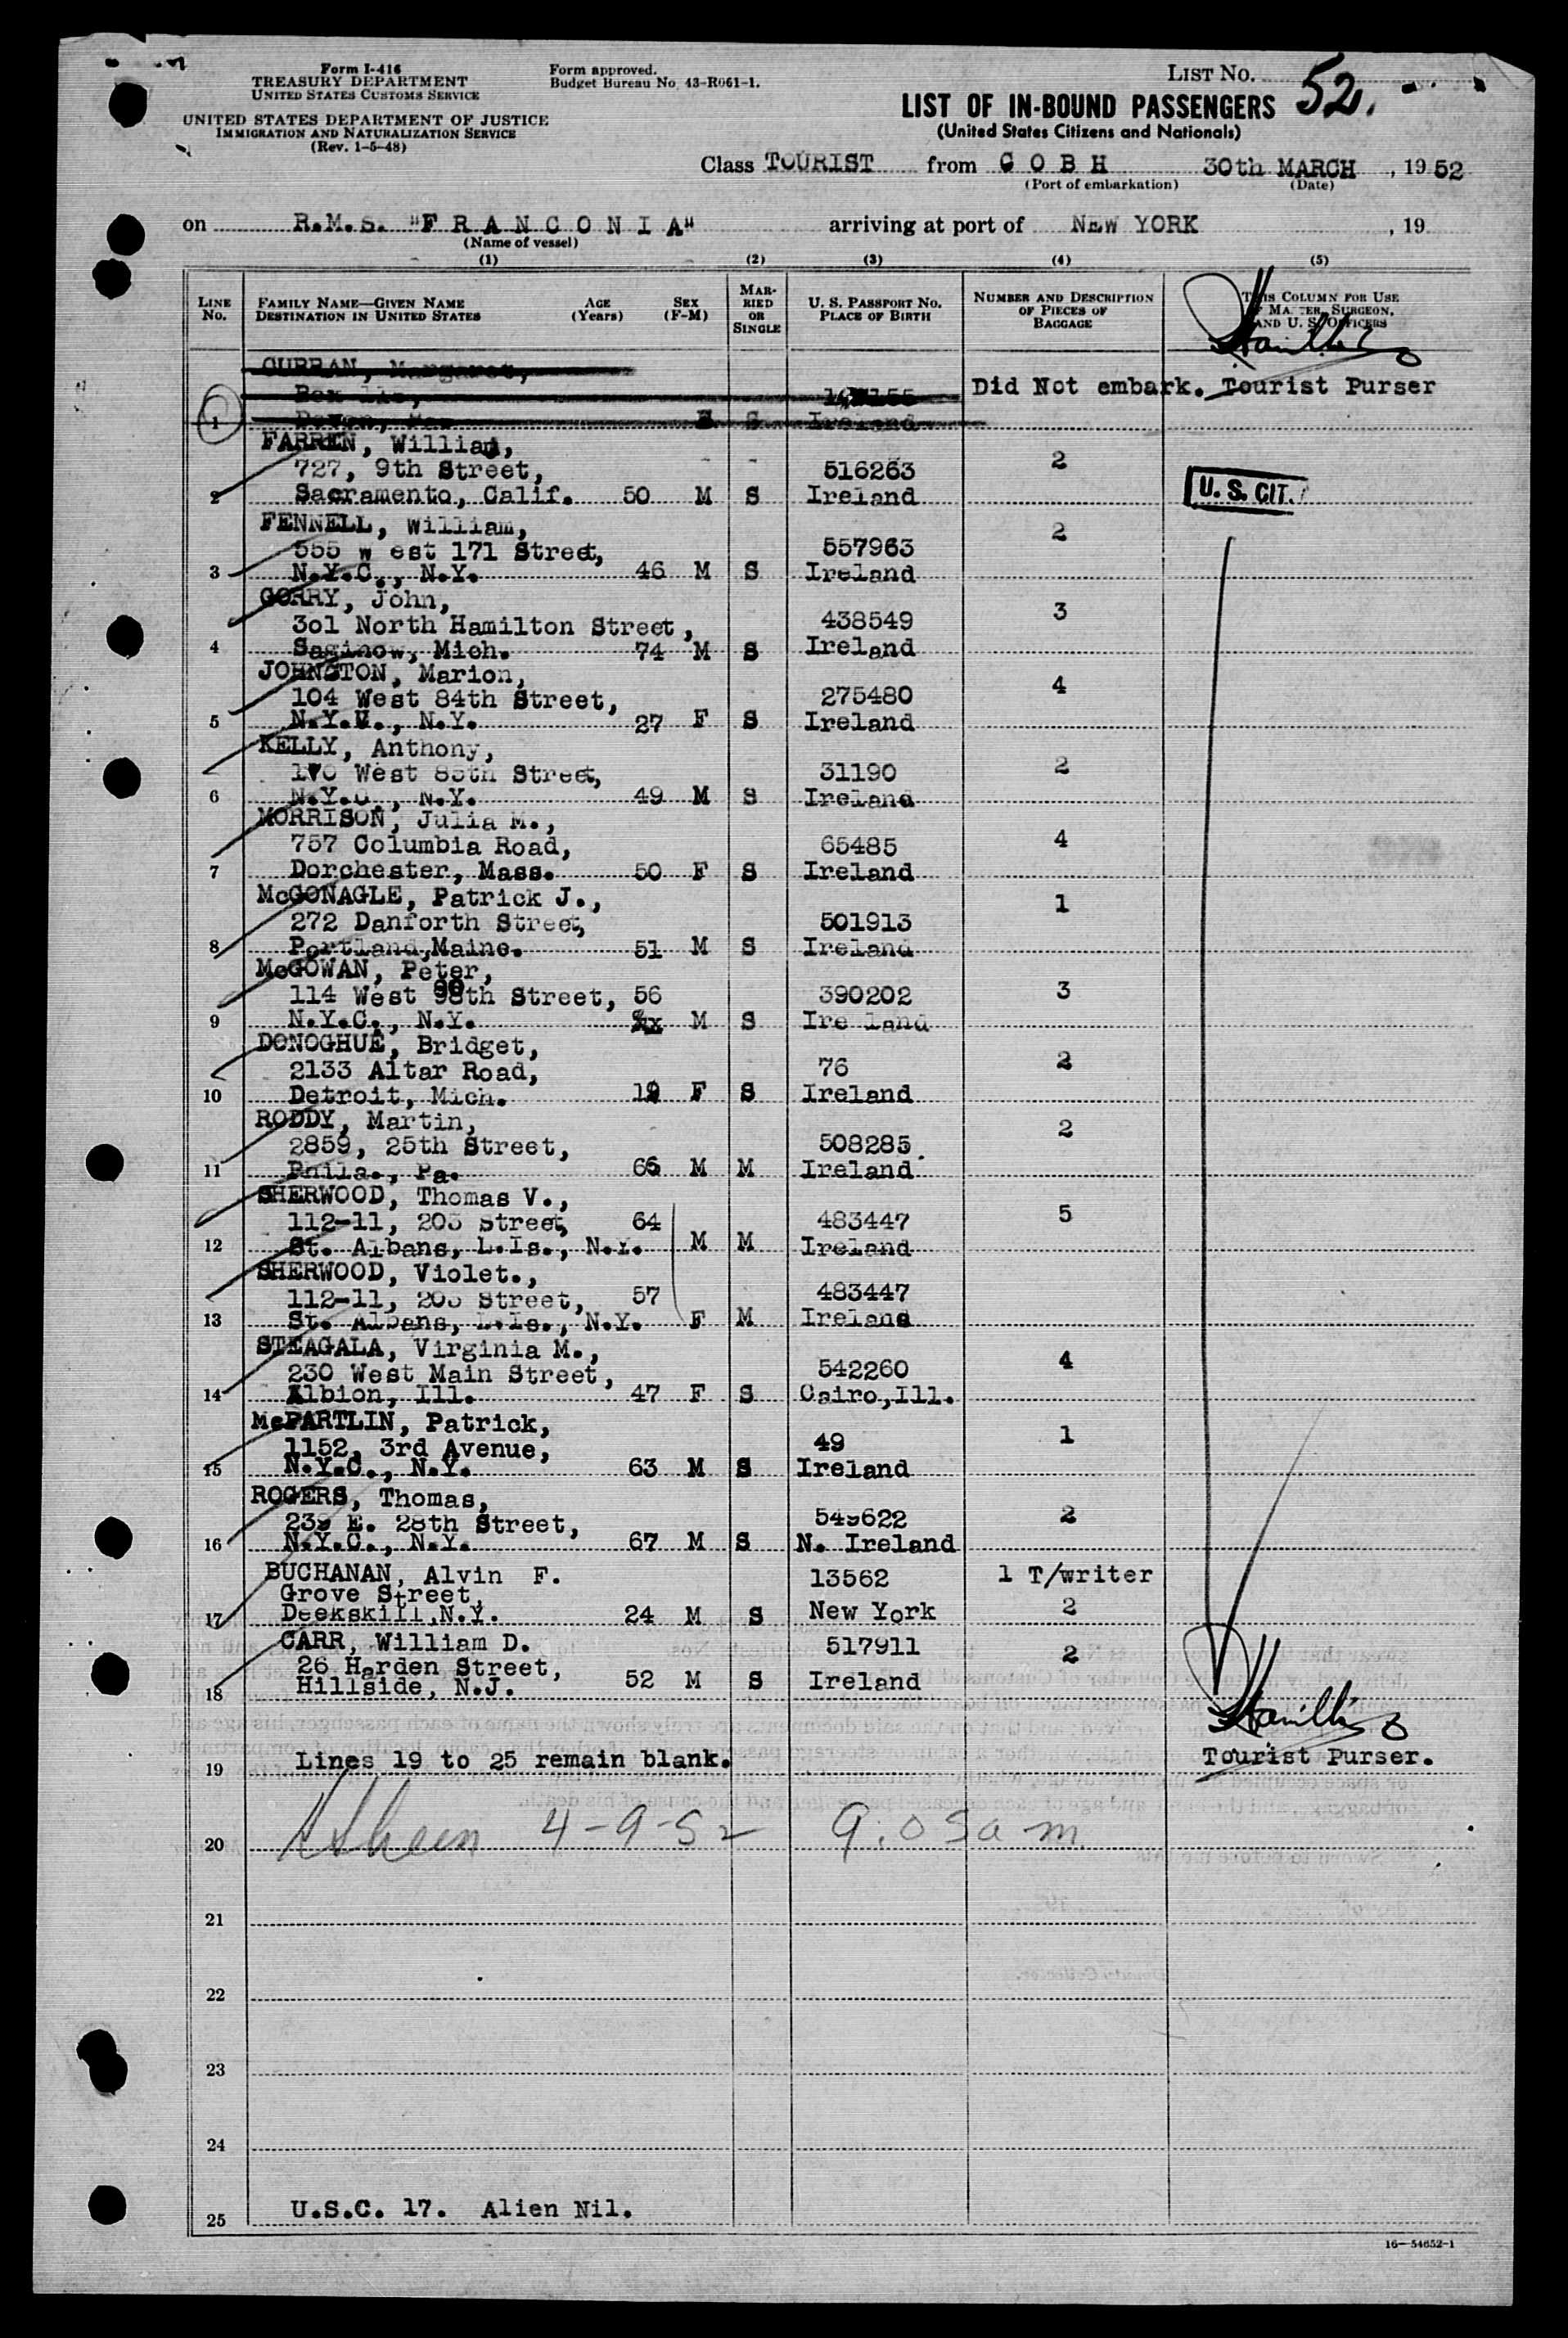 Form I-416
TREASURY DEPARTMENT
UNITED STATES CUSTOMS SERVICE
UNITED STATES DEPARTMENT OF JUSTICE
IMMIGRATION AND NATURALIZATION SERVICE
(Rev. 1-5-48)
Form approved.
Budget Bureau No. 43-R061-1.
LIST No. 52.
LIST OF IN-BOUND PASSENGERS
(United States Citizens and Nationals)
Class TOURIST from COBH 30th MARCH, 1952
(Port of embarkation) (Date)
on R.M.S. "FRANCONIA" arriving at port of NEW YORK, 19
(Name of vessel)
(1) (2) (3) (4) (5)
LINE No. FAMILY NAME—GIVEN NAME DESTINATION IN UNITED STATES AGE (Years) SEX (F-M) MARRIED OR SINGLE U. S. PASSPORT No. PLACE OF BIRTH NUMBER AND DESCRIPTION OF PIECES OF BAGGAGE THIS COLUMN FOR USE OF MASTER, SURGEON, AND U. S. OFFICERS
CURRAN, Margaret,
Did Not embark. Tourist Purser
1 S Ireland
FARREN, William,
727, 9th Street, 516263 2
2 Sacramento, Calif. 50 M S Ireland U. S. CIT.
FENNELL, William,
555 w est 171 Street, 557963 2
3 N.Y.C., N.Y. 46 M S Ireland
GORRY, John,
301 North Hamilton Street, 438549 3
4 Saginow, Mich. 74 M S Ireland
JOHNSTON, Marion,
104 West 84th Street, 275480 4
5 N.Y.C., N.Y. 27 F S Ireland
KELLY, Anthony,
West 85th Street, 31190 2
6 N.Y.C., N.Y. 49 M S Ireland
MORRISON, Julia M.,
757 Columbia Road, 65485 4
7 Dorchester, Mass. 50 F S Ireland
McGONAGLE, Patrick J., 1
272 Danforth Street, 501913
8 Portland,Maine. 51 M S Ireland
McGOWAN, Peter,
114 West Street, 56 390202 3
9 N.Y.C., N.Y. M S Ire land
DONOGHUE, Bridget,
2133 Altar Road, 76 2
10 Detroit, Mich. 19 F S Ireland
RODDY, Martin,
2859, 25th Street, 508285. 2
11 Phila., Pa. 66 M M Ireland
SHERWOOD, Thomas V.,
112-11, 203 Street, 64 483447 5
12 St. Albans, L.Is., N.Y. M M Ireland
SHERWOOD, Violet.,
112-11, 203 Street, 57 483447
13 St. Albans, L.Is., N.Y. F M Ireland
STEAGALA, Virginia M.,
230 West Main Street, 542260 4
14 Albion, Ill. 47 F S Cairo,Ill.
McPARTLIN, Patrick,
1152, 3rd Avenue, 49 1
15 N.Y.C., N.Y. 63 M S Ireland
ROGERS, Thomas,
239 E. 28th Street, 549622 2
16 N.Y.C., N.Y. 67 M S N. Ireland
BUCHANAN, Alvin F. 13562 1 T/writer
Grove Street,
17 Deekskill,N.Y. 24 M S New York 2
CARR, William D. 517911 2
26 Harden Street,
18 Hillside, N.J. 52 M S Ireland
19 Lines 19 to 25 remain blank. Tourist Purser.
20 4-9-52 9:05 a m
21
22
23
24
25 U.S.C. 17. Alien Nil.
16—54652-1